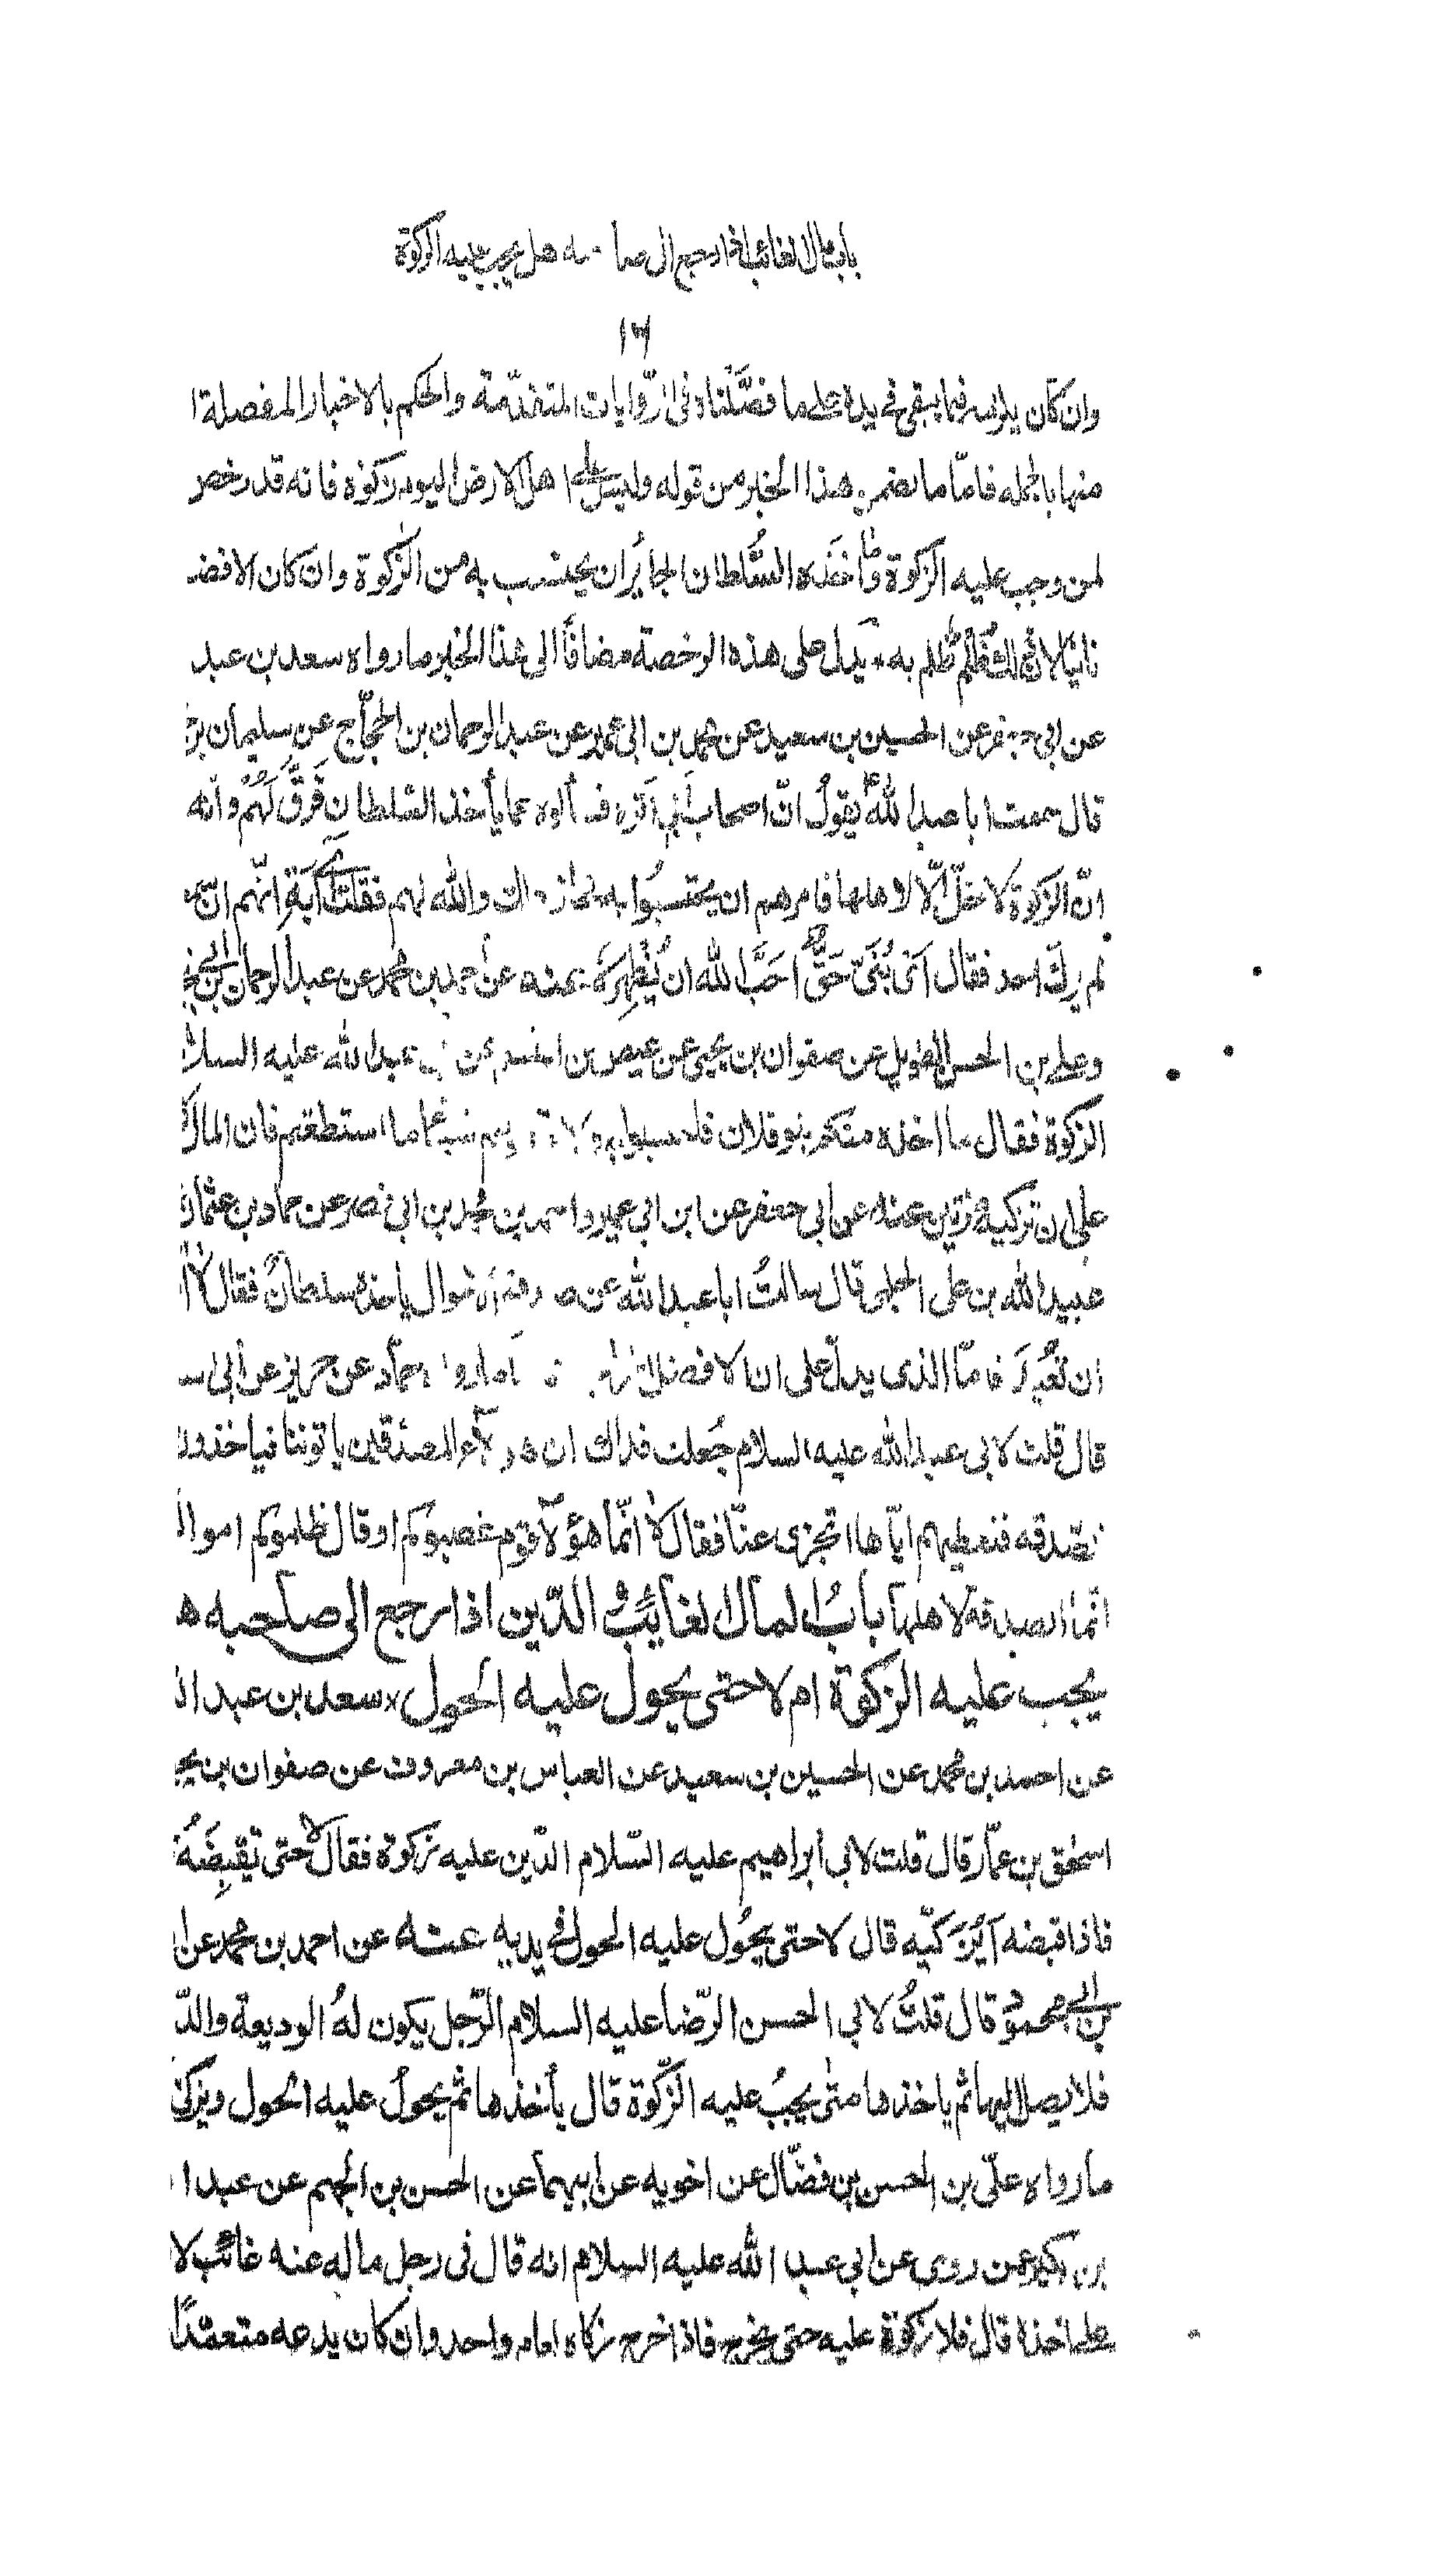 باب المال الغائب اذا رجع الى صا به هل يجب عليه الزكوة
١٦
وان كان يلزمه فيما يبقى فى يده على ما فصّلناه فى الرّوايات المتقدّمة والحكم بالاخبار المفصلة ا
منها بالجمله فامّا ما تضمن هذا الخبر من قوله وليس على اهل الارض اليوم زكوة فانه قد رخص
لمن وجب عليه الزكوة واخذه السُّلطان الجايُر ان يحتسب به من الزّكوة وان كان الافضـ
ثانيًا لانّ ظلم به يدل على هذه الرخصة مضافًا الى هذا الخبر ما رواه سعد بن عبد
عن ابى جعفر عن الحسين بن سعيد عن محمد بن ابى عمير عن عبد الرحمان بن الحجّاج عن سليمان بن
قال سمعت ابا عبد الله يقولُ انّ اصحاب ابى اتوه فسألوه عما يأخذ السّلطان فَرَقَّ لَهُمْ وانه
انّ الزّكوة لا تحلّ الّا لاهلها فامرهم ان يحتسبُوا به ذاك والله لهم فقلت يا اَبَةِ انّهم ان
لم يزك احد فقال اى بُنَىّ حَقٌّ اَحَبَّ الله ان يُظْهِرَهُ عنه عن احمد بن محمد عن عبد الرحمان بن ابى نج
وعلى بن الحسن الطويل عن صفوان بن يحيى عن عيص بن القسم عن ابى عبد الله عليه السلا
الزكوة فقال ما اخذه منكم بنو فلان فاحتسبوا به ولا تعطوهم شيئا ما استطعتم فان المال
على ان تزكيه مرّتين عنه عن ابى جعفر عن ابن ابى عمير واحمد بن محمد بن ابى نصر عن حماد بن عثمان
عبيد الله بن على الحلبى قال سالتُ ابا عبد الله عن صدقة الاموال ياخذها سلطانٌ فقال لا ا
ان تُعيد فامّا الذى يدلّ على ان الافضل ما رواه حمّاد عن حريز عن ابى اسـ
قال قلت لابى عبد الله عليه السلام جُعلت فداك ان هؤلاء المصدّقين ياتوننا فياخذون
الصّدقه فنعطيهم ايّاها اتجزى عنّا فقال لا انّما هؤلآ قوم غصبوكم او قال ظلموكم اموالـ
انّما الصدقة لاهلها بابُ المال الغايَب والدّين اذا رجع الى صاحبه هـ
يُجب عليه الزكوة ام لا حتى يحول عليه الحول سعد بن عبد ا
عن احمد بن محمد عن الحسين بن سعيد عن العباس بن معروف عن صفوان بن يحـ
اسحق بن عمّار قال قلت لابى ابراهيم عليه السّلام الدّين عليه زكوة فقال لا حتى تقبِضَهُ
فاذا قبضه أيُزَكّيه قال لا حتى يحُول عليه الحول فى يديه عنه عن احمد بن محمد عن ا
بن ابى محمود قال قلتُ لابى الحسن الرّضا عليه السلام الرّجل يكون لهُ الوديعة والدّ
فلا يصل اليها ثم ياخذها متى يجبُ عليه الزّكوة قال يأخذها ثم يحولُ عليه الحول ويزكى
ما رواه علّى بن الحسن بن فضّال عن اخويه عن ابيهما عن الحسن بن الجهم عن عبد ا
بن بكير عمن روى عن ابى عبد الله عليه السلام انه قال فى رجل ماله عنه غائب لا
على اخذه قال فلا زكوة عليه حتى يخرج فاذا خرج زكاه لعام واحد وان كان يدعه متعمّدًا